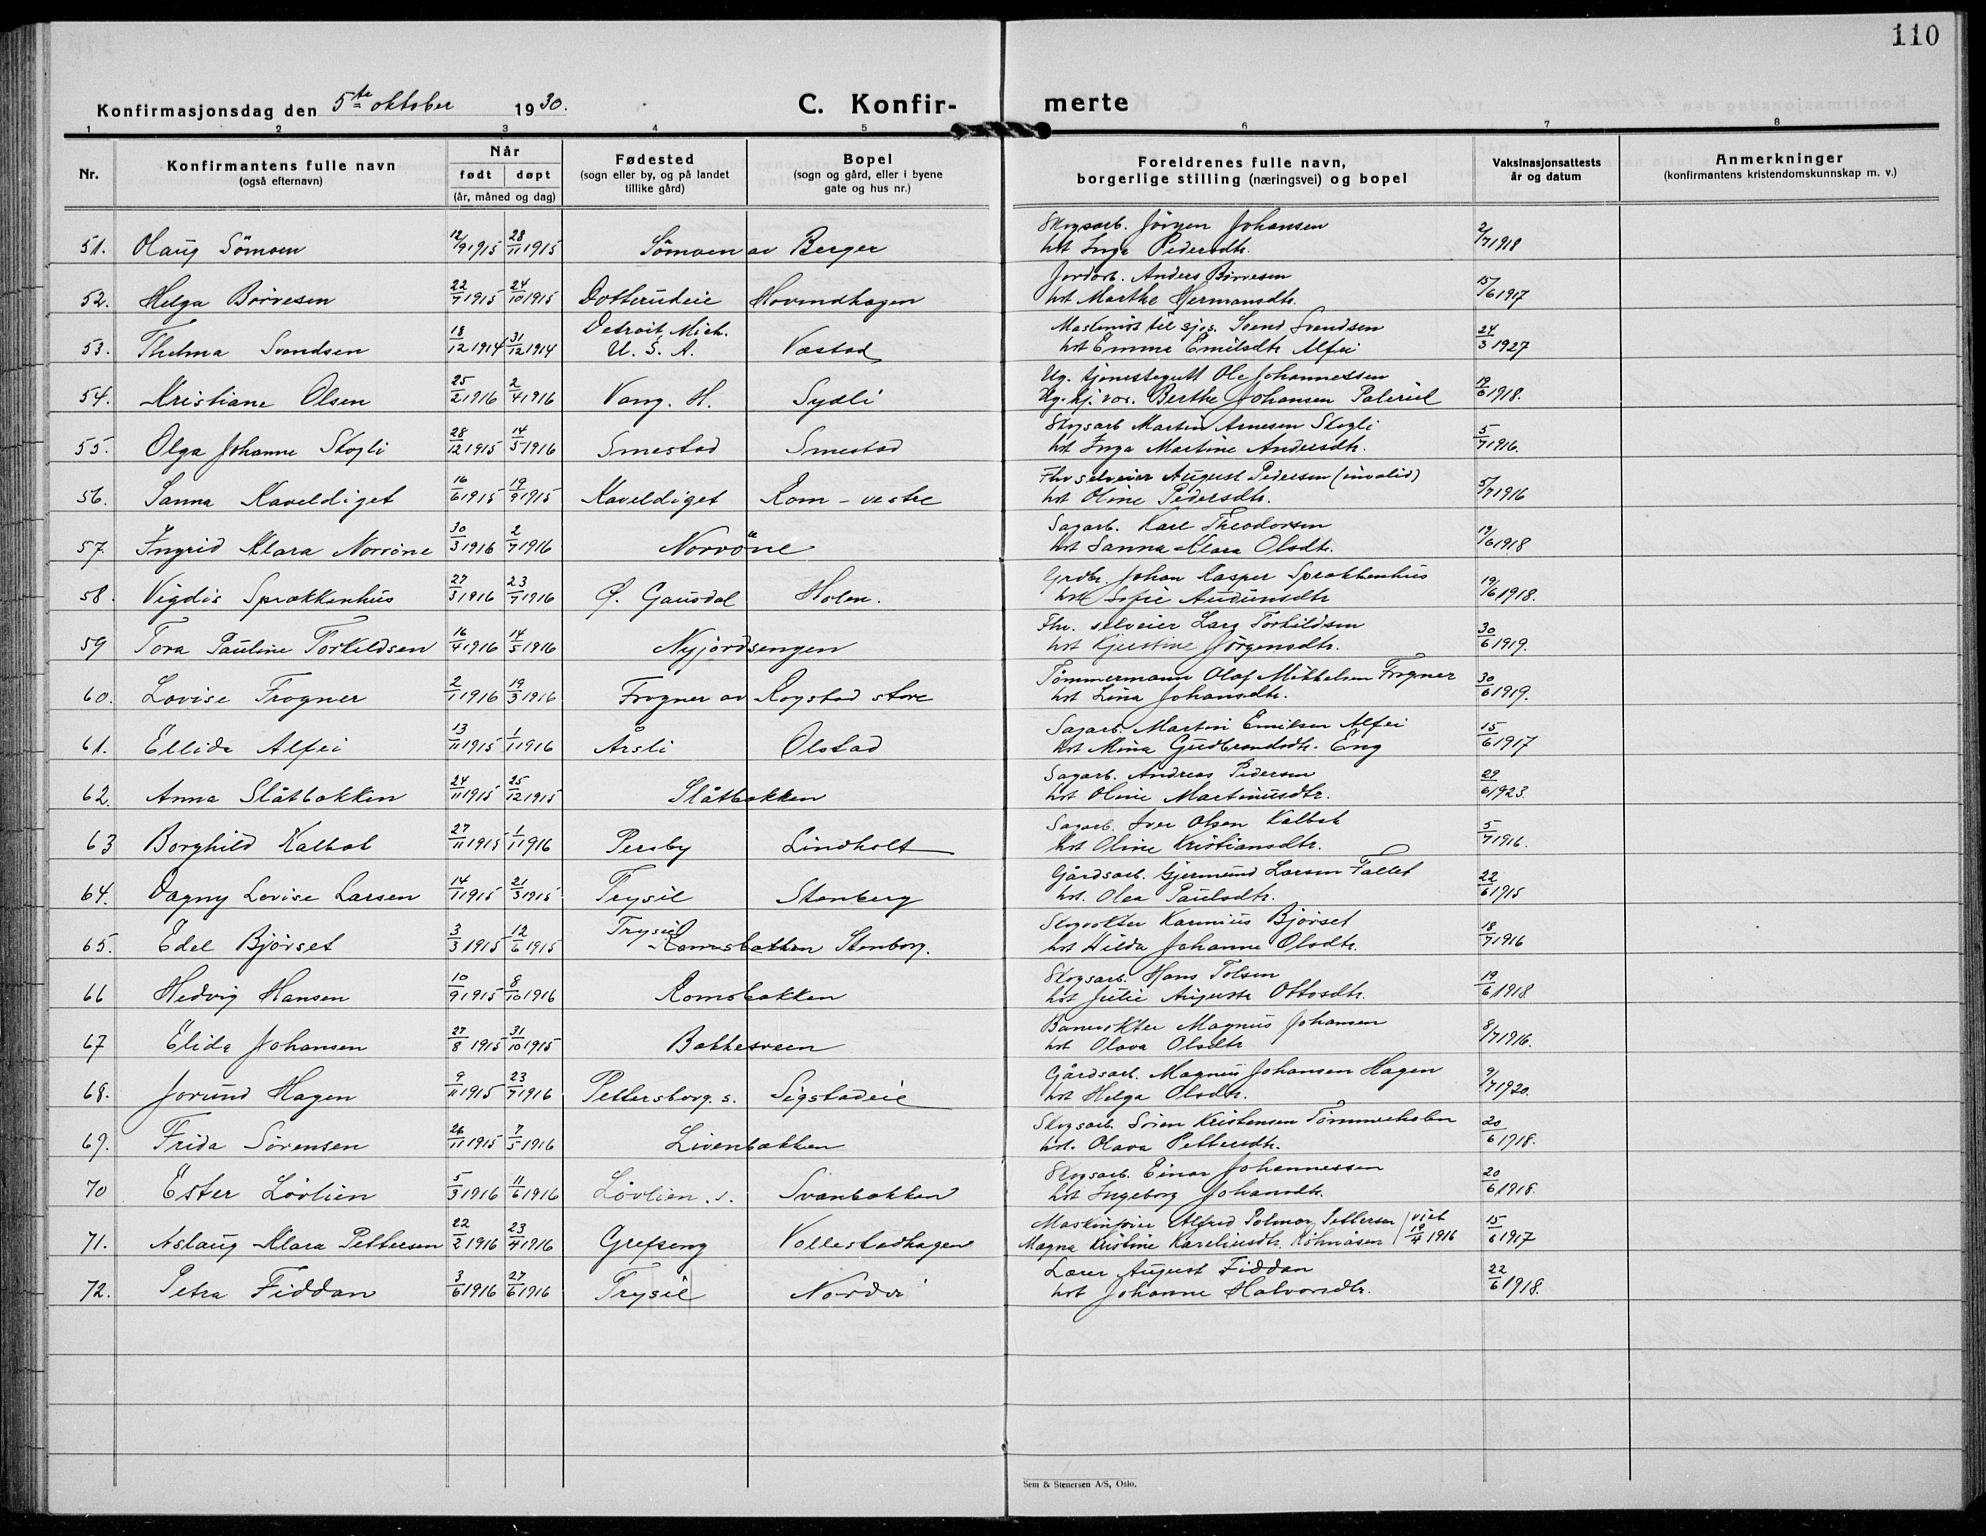 110
Konfirmasjonsdag den 5te oktober 1930. C. Konfir- merte
1 2 3 4 5 6 7 8
Nr. Konfirmantens fulle navn (også efternavn) Når født døpt (år, måned og dag) Fødested (sogn eller by, og på landet tillike gård) Bopel (sogn og gård, eller i byene gate og hus nr.) Foreldrenes fulle navn, borgerlige stilling (næringsvei) og bopel Vaksinasjonsattests år og datum Anmerkninger (konfirmantens kristendomskunnskap m. v.)
51. Olaug Sömoen 12/9 1915 28/11 1915 Sömoen av Berger Skogsarb. Jörgen Johansen
hst Inga Pedersdtr. 2/7 1918
52. Helga Börresen 22/7 1915 24/10 1915 Dotterudeie Hovindhagen Jordarb. Anders Börresen
hst Marthe Hermansdtr. 15/6 1917
53. Thelma Svendsen 18/12 1914 31/12 1914 Detroit, Mich. U. S. A. Væstad Maskinist til sjøs. Svend Svendsen
hst Emma Emilsdtr Alfei 24/3 1927
54. Kristiane Olsen 25/2 1916 2/4 1916 Vang. H. Sydli Ug. tjenestegutt Ole Johannessen
Ug. tj. Berthe Johansen 19/6 1918.
55. Olga Johanne Skogli 28/12 1915 14/5 1916 Smestad Smestad Skogsarb Martin Arnesen Skogli
hst Inga Martine Andersdtr. 5/7 1916.
56. Sanna Kaveldiget 16/6 1915 19/9 1915 Kaveldiget Rom - vestre Fhv selveier August Pedersen (invalid)
hst Oline Pedersdtr. 5/7 1916
57. Ingrid Klara Norröne 30/3 1916 2/7 1916 Norröne Sagarb. Karl Theodorsen
hst Sanna Klara Olsdtr. 19/6 1918
58. Vigdis Sprækkenhus 27/3 1916 23/7 1916 Ø. Gausdal Holen. Grdbr. Johan Kasper Sprækkenhus
hst Sofie Audunsdtr 19/6 1918.
59 Tora Pauline Torkildsen 16/4 1916 14/5 1916 Nyjordsengen Fhv. selveier Lars Torkildsen
hst Kjerstine Jörgensdtr. 30/6 1919.
60. Lovise Frogner 2/1 1916 19/3 1916 Frogner av Rogstad store Tömmermann Olaf Mikkelsen Frogner
hst Lina Johansdtr. 30/6 1919.
61. Ellida Alfei 13/11 1915 1/11 1916 Årsli Olstad Sagarb. Martin Emilsen Alfei
hst Mina Gudbrandsdtr. Eng 15/6 1917
62. Anna Slåtbakken 24/11 1915 25/12 1915 Slåtbakken Sagarb. Andreas Pedersen
hst Oline Martinusdtr. 29/6 1923.
63 Borghild Kalbak 27/11 1915 1/11 1916 Persby Lindholt Sagarb. Iver Olsen Kalbak
hst Oline Kristiansdtr. 5/7 1916.
64. Dagny Lovise Larsen 14/1 1915 21/3 1915 Trysil Stenberg Gårdsarb. Gjermund Larsen Fallet
hst. Olea Paulsdtr. 22/6 1915
65. Edel Bjørset 3/3 1915 12/6 1915 Trysil Romsbakken Stenborg. Skogvokter Karinius Bjørset
hst Hilda Johanne Olsdtr. 18/7 1916
66 Hedvig Hansen 10/9 1915 8/10 1916 Romsbakken Skogsarb. Hans Tolsen
hst Julie Auguste Ottosdtr. 19/6 1918.
67 Elida Johansen 27/8 1915 31/10 1915 Bakkesveen Banevokter Magnus Johansen
hst Olava Olsdtr 8/7 1916.
68. Jorund Hagen 9/11 1915 23/7 1916 Pettersborg. s. Sigstadeie Gårdsarb. Magnus Johansen Hagen
hst Helga Olsdtr. 9/7 1920.
69. Frida Sörensen 26/11 1915 7/5 1916 Livenbakken Skogsarb. Sören Kristensen Tömmerholen
hst. Olava Pettersdtr. 20/6 1918.
70 Ester Lövlien 5/3 1916 11/6 1916 Lövlien. s. Svenbakken Skogsarb. Einar Johannessen
hst Ingeborg Johansdtr. 20/6 1918.
71. Aslaug Klara Pettersen 22/2 1916 23/4 1916 Grefseng Vollestadhagen Maskinfører Alfred Polmar Pettersen
Magna Kristine Kareliusdtr. viet 19/4 1916 15/6 1917
72. Petra Fiddan 3/6 1916 27/6 1916 Trysil Nordvi Lærer August Fiddan
hst Johanne Halvorsdtr. 22/6 1918.
Sem & Stenersen A/S, Oslo.